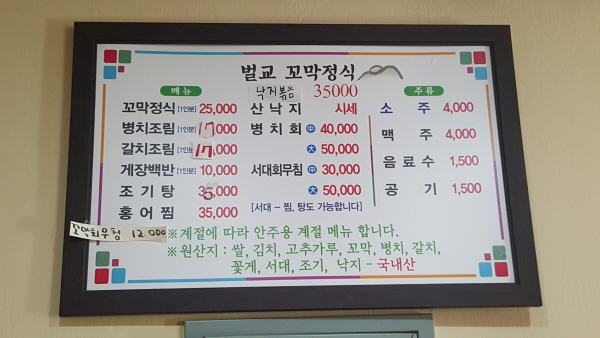 벌교 꼬막정식
메뉴
꼬막정식 [1인분] 25,000
병치조림 [1인분] 17,000
갈치조림 [1인분] 17,000
게장백반 [1인분] 10,000
조기탕 35,000
홍어찜 35,000
꼬막회무침 12,000
낙지볶음 35000
산낙지 시세
병치회 中 40,000
大 50,000
서대회무침 中 30,000
大 50,000
[서대 - 찜, 탕도 가능합니다]
주류
소주 4,000
맥주 4,000
음료수 1,500
공기 1,500
※계절에 따라 안주용 계절 메뉴 합니다.
※원산지 : 쌀, 김치, 고추가루, 꼬막, 병치, 갈치,
꽃게, 서대, 조기, 낙지 - 국내산